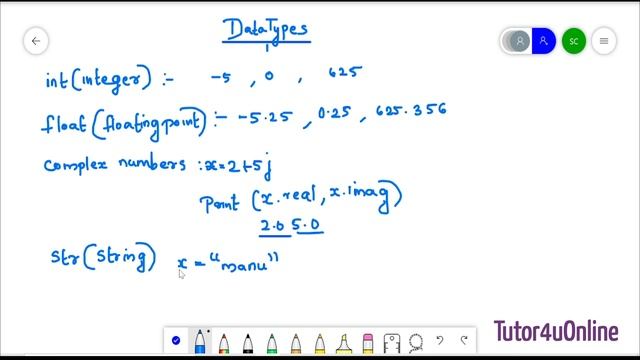 DataTypes
SC
int(integer) :- -5 , 0 , 625
float(floatingpoint) :- -5.25 , 0.25 , 625.356
complex numbers : x=2+5j
Point (x.real, x.imag)
2.0 5.0
Str(String) x = "manu"
Tutor4uOnline